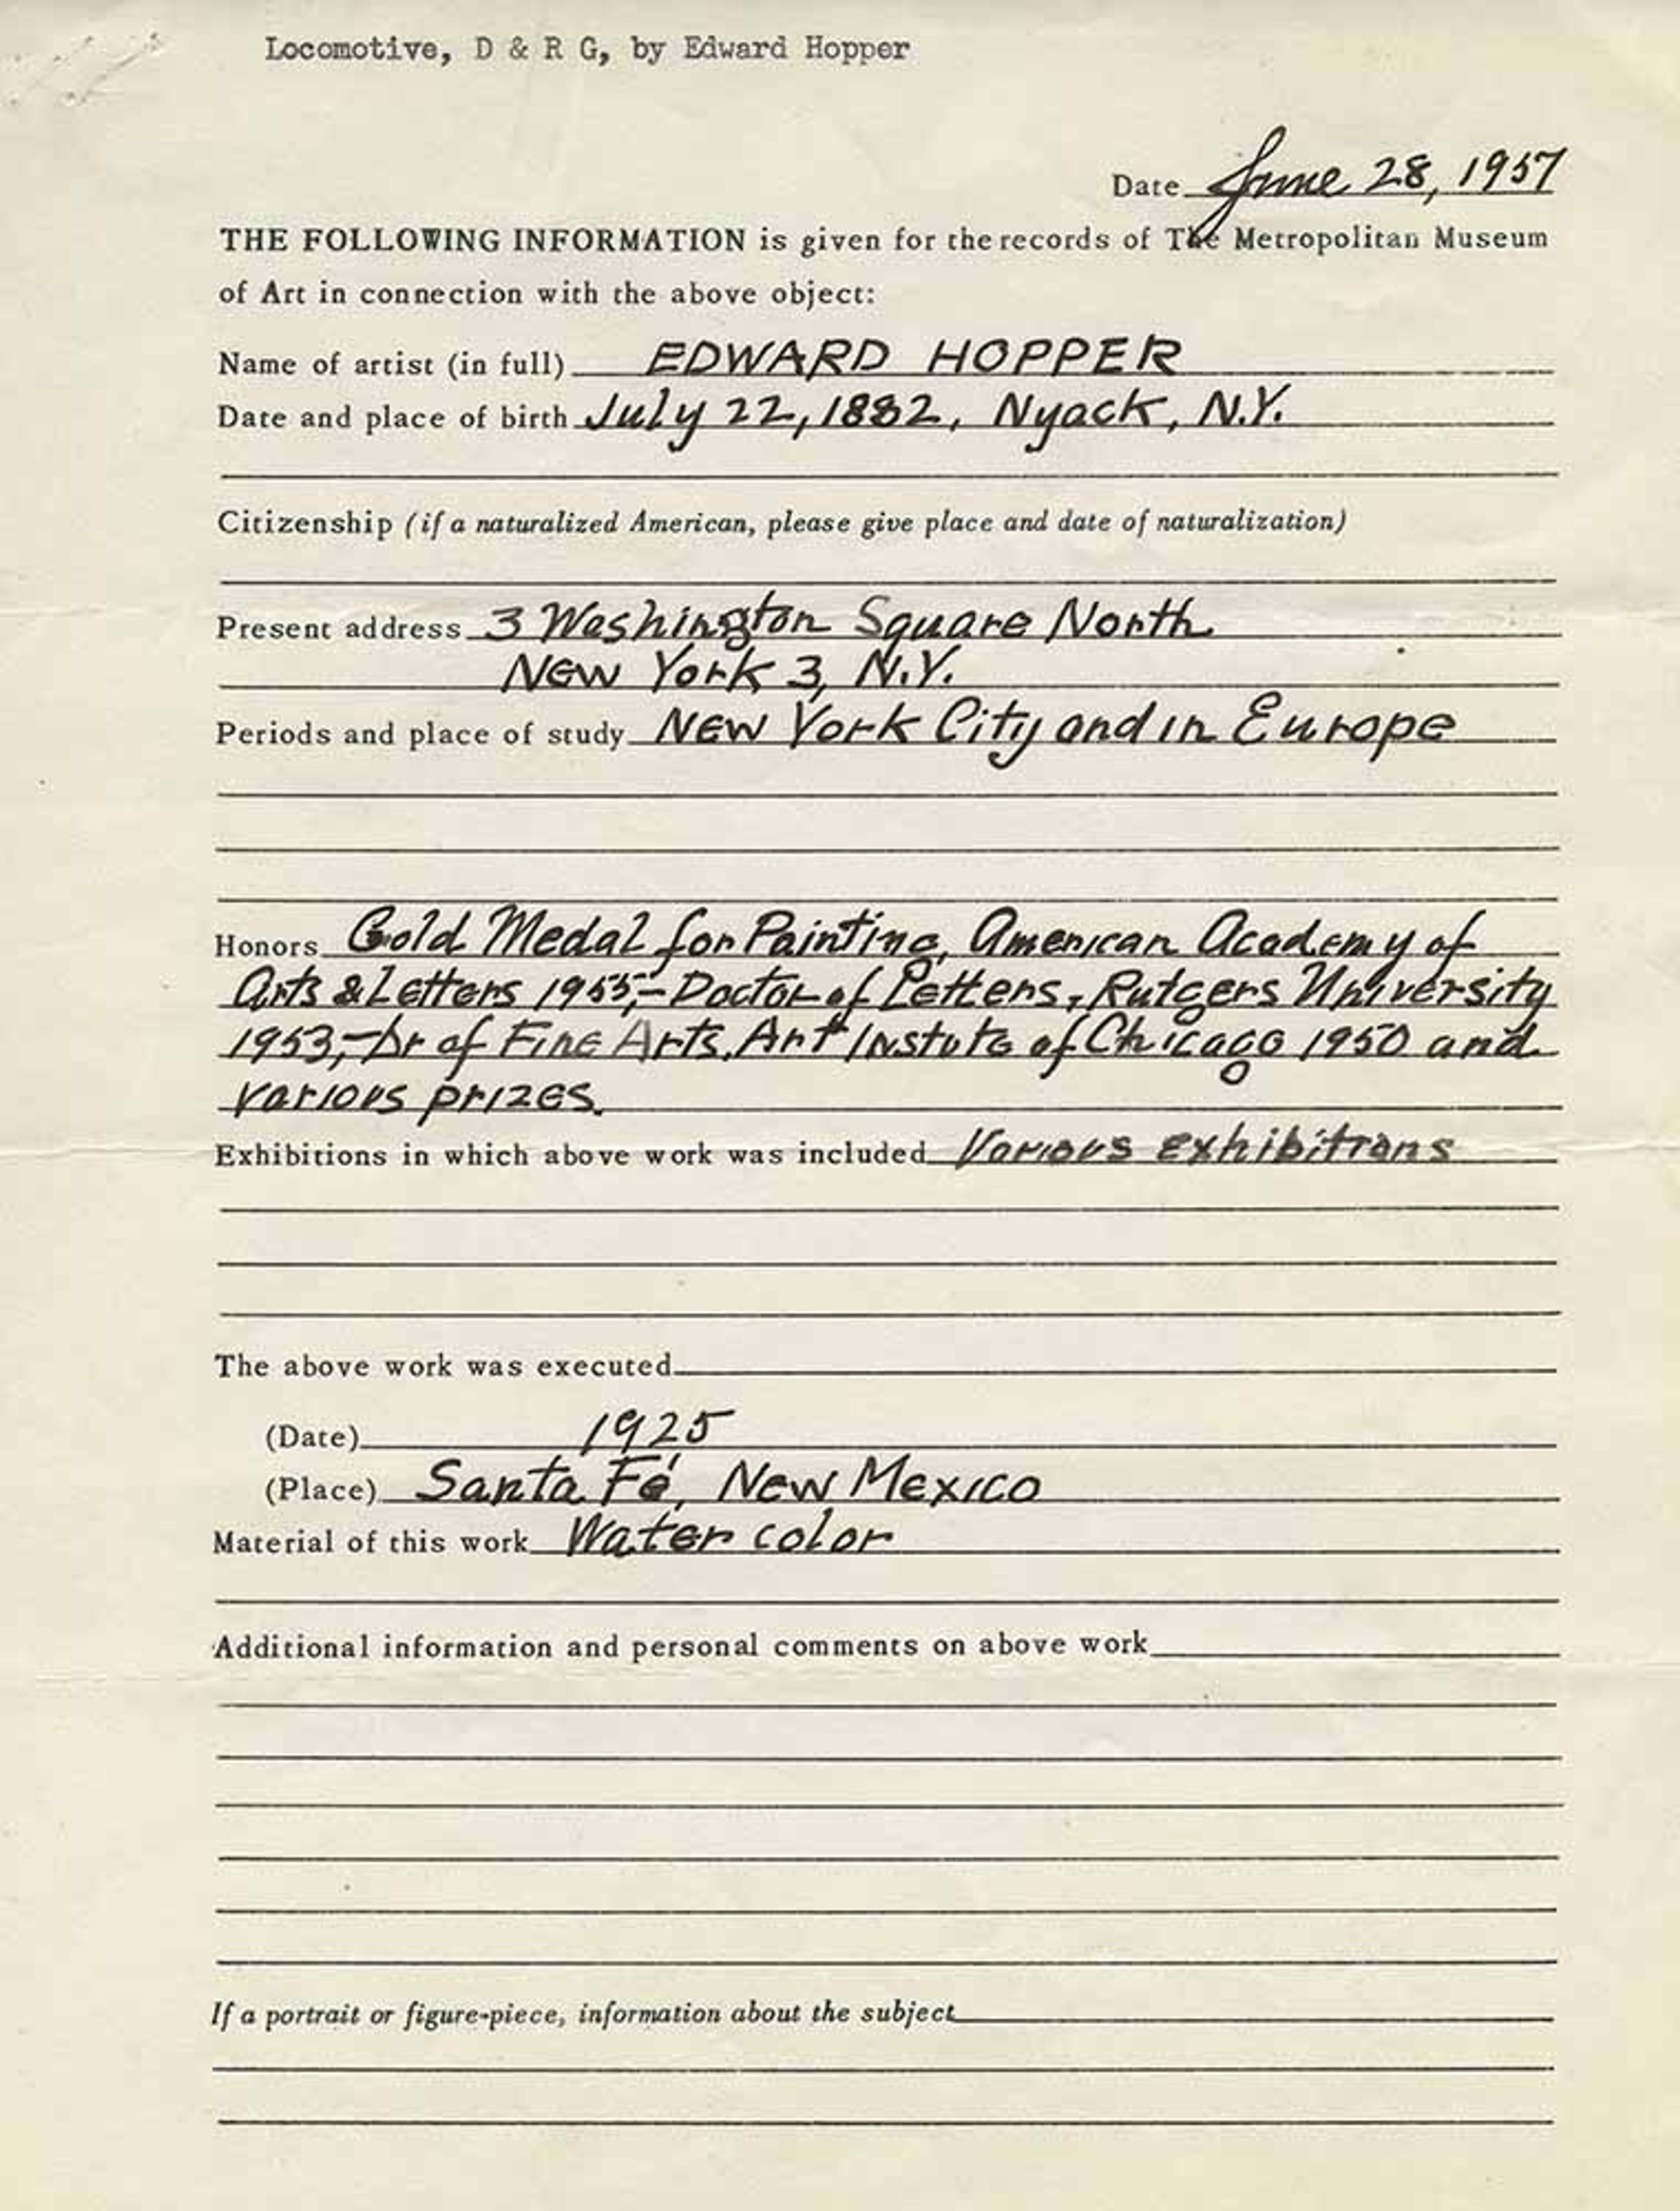 Locomotive, D & R G, by Edward Hopper
Date June 28, 1957
THE FOLLOWING INFORMATION is given for the records of The Metropolitan Museum
of Art in connection with the above object:
Name of artist (in full) EDWARD HOPPER
Date and place of birth July 22, 1882, Nyack, N.Y.
Citizenship (if a naturalized American, please give place and date of naturalization)
Present address 3 Washington Square North
New York 3, N.Y.
Periods and place of study New York City and in Europe
Honors Gold Medal for Painting, American Academy of
Arts & Letters 1955,- Doctor of Letters, Rutgers University
1953,- Dr of Fine Arts, Art Instute of Chicago 1950 and
various prizes.
Exhibitions in which above work was included Various exhibitions
The above work was executed
(Date) 1925
(Place) Santa Fé, New Mexico
Material of this work Water color
Additional information and personal comments on above work
If a portrait or figure-piece, information about the subject